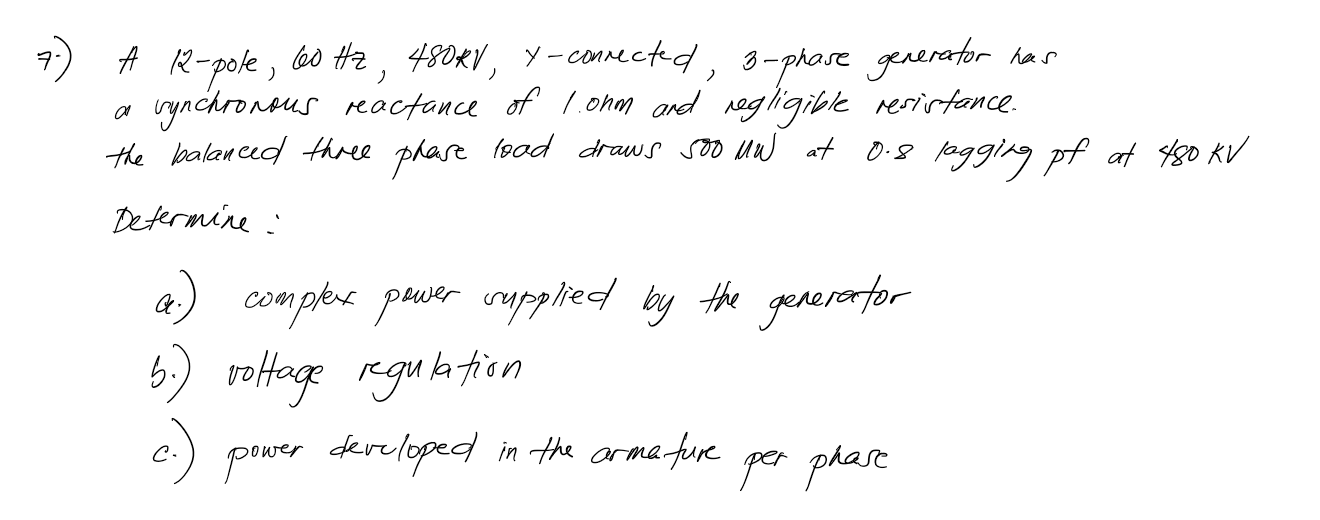 7.) A 12-pole, 60 Hz, 480kV, Y-connected, 3-phase generator has
a synchronous reactance of 1.ohm and negligible resistance.
the balanced three phase load draws 500 MW at 0.8 lagging pf at 480 KV
Determine :
a.) complex power supplied by the generator
b.) voltage regulation
c.) power developed in the armature per phase